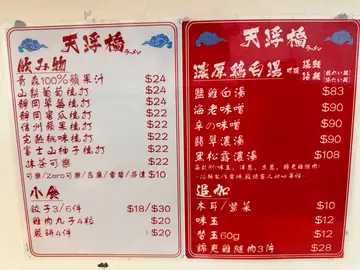 天浮橋
ラーメン
飲み物
青森100%蘋果汁 $24
山梨葡萄梳打 $24
靜岡草莓梳打 $24
靜岡蜜瓜梳打 $22
信州蘋果梳打 $22
完熟桃味梳打 $22
富士山柚子梳打 $22
抹茶可樂 $22
可樂/Zero可樂/忌廉/雪碧/芬達 $10
小食
餃子3/6件 $18/$30
雞肉丸子4粒 $20
菜餅4件 $20
天浮橋
ラーメン
濃厚鶏白湯
湯麵
沾麵
鹽雞白湯 $83
海老味噌 $90
辛の味噌 $90
翡翠濃湯 $90
黑松露濃湯 $108
追加
木耳/紫菜 $10
味玉 $12
替玉60g $12
錦爽雞腿肉3件 $28